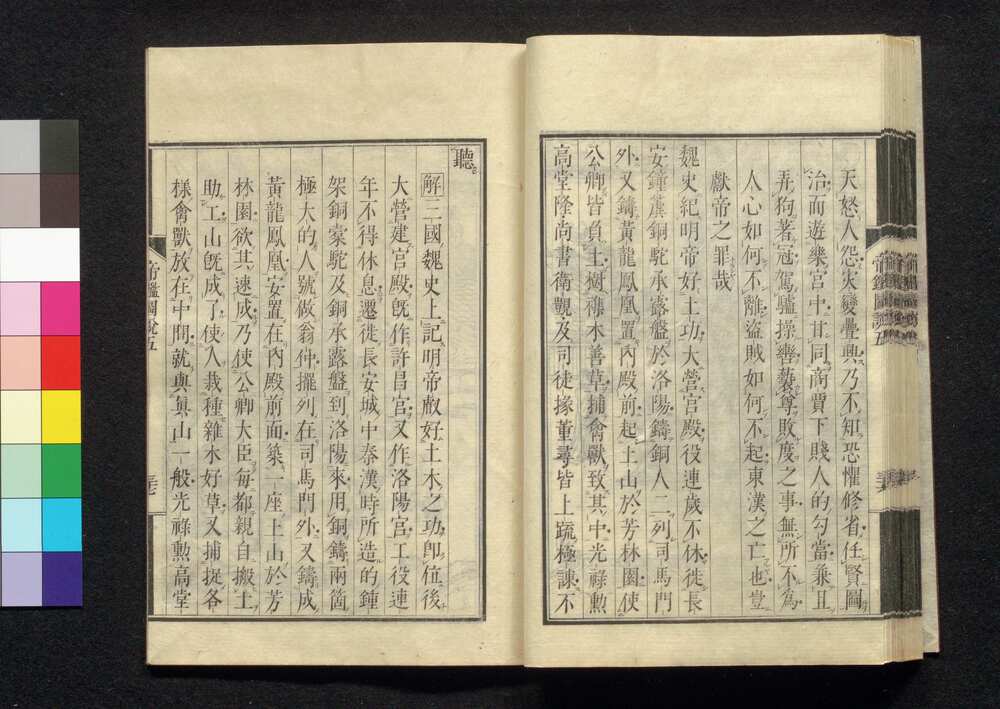 天怒人怨災變疊興乃不知恐懼修省任賢圖
治而遊樂宮中甘同商賈下賤人的勾當兼且
弄狗著冠駕驢操轡褻尊敗度之事無所不為
人心如何不離盜賊如何不起東漢之亡也豈
獻帝之罪哉
魏史紀明帝好土功大營宮殿役連歲不休徙長
安鐘簴銅駝承露盤於洛陽鑄銅人二列司馬門
外又鑄黃龍鳳凰置內殿前起土山於芳林園使
公卿皆負土樹雜木善草捕禽獸致其中光祿勲
高堂隆尚書衛覬及司徒掾董尋皆上疏極諫不
聽
解三國魏史上記明帝叡好土木之功即位後
大營建宮殿既作許昌宮又作洛陽宮工役連
年不得休息遷徙長安城中秦漢時所造的鍾
架銅橐駝及銅承露盤到洛陽來用銅鑄兩箇
極大的人號做翁仲擺列在司馬門外又鑄成
黃龍鳳凰安置在內殿前面築一座土山於芳
林園欲其速成乃使公卿大臣每都親自搬土
助工山既成了使人栽種雜木好草又捕捉各
樣禽獸放在中間就與真山一般光祿勲高堂
帝鑑圖說五